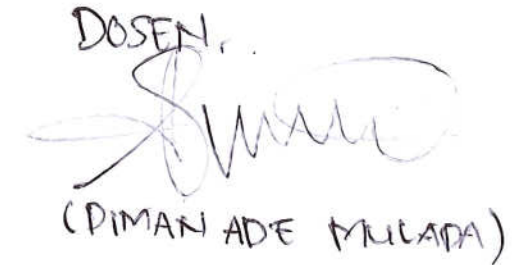 DOSEN...
(DIMAN ADE MULADA)